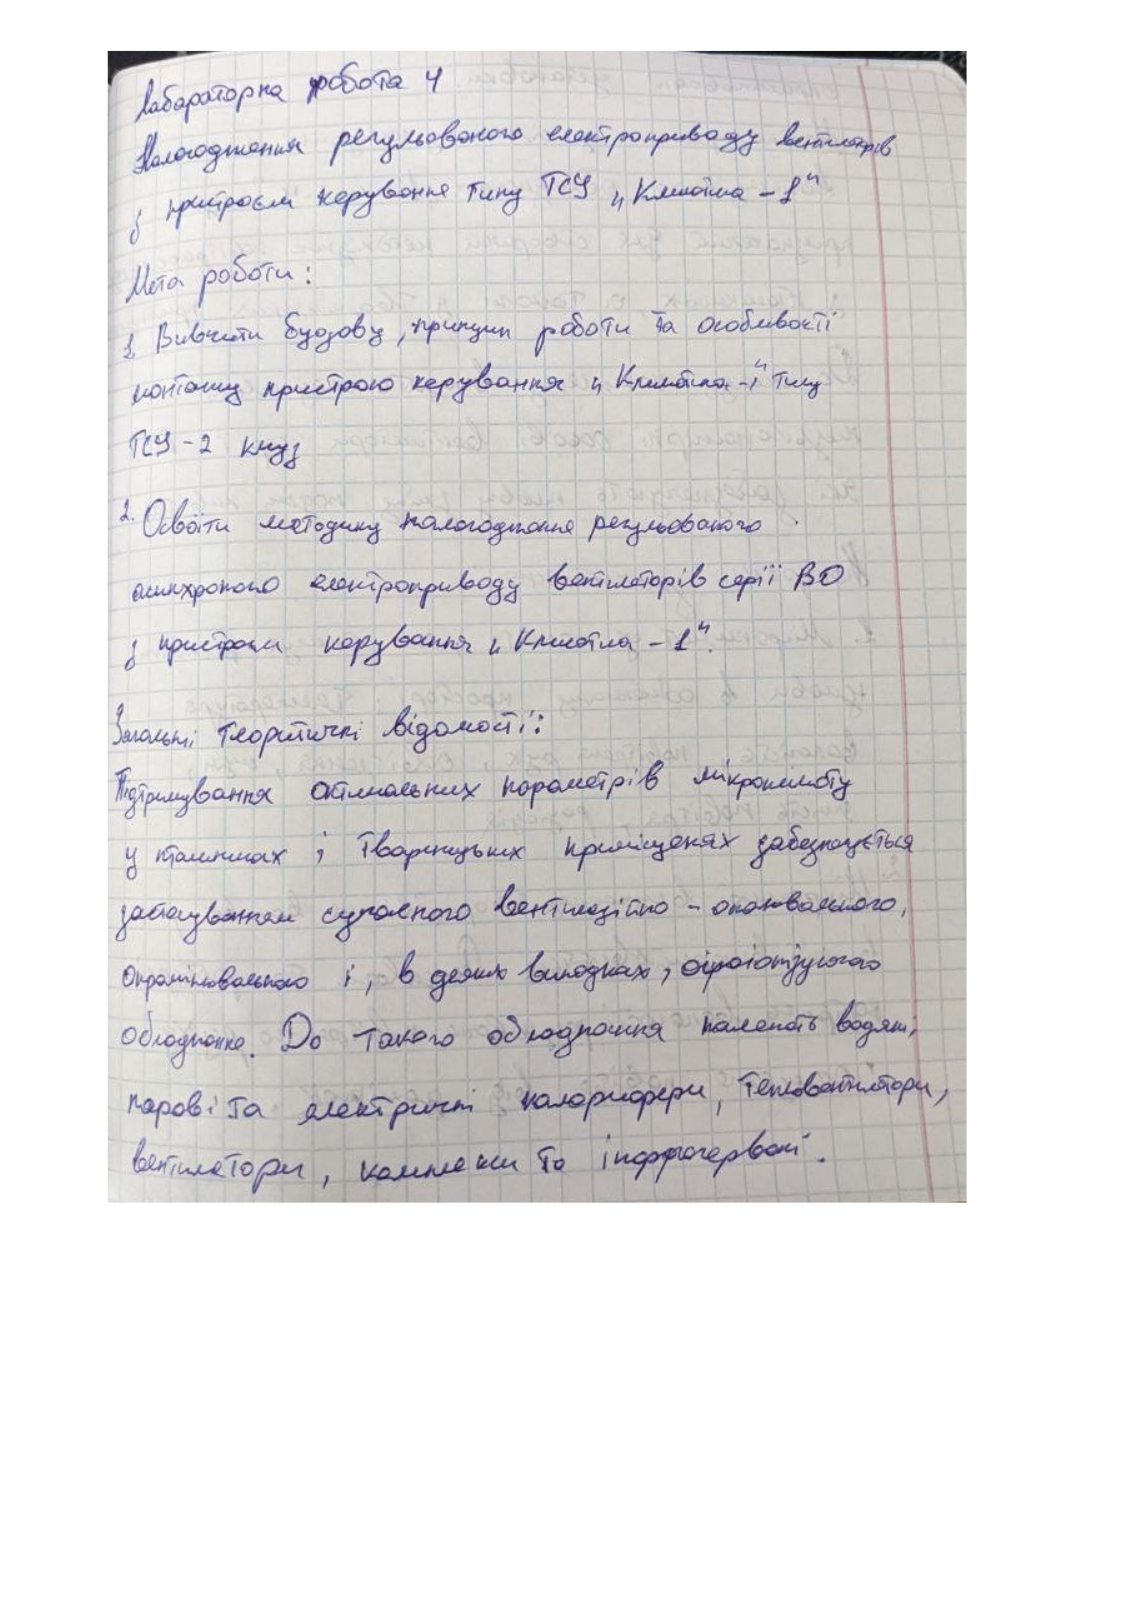 Лабораторна робота 4
Налагодження регульованого електроприводу вентиляторів
з пристроєм керування типу ТСУ „Кліматика – 1"
Мета роботи:
1. Вивчити будову, принцип роботи та особливості
монтажу пристрою керування „Кліматика-1" типу
ТСУ – 2
2. Освоїти методику налагодження регульованого
асинхроного електроприводу вентиляторів серії ВО
з пристроєм керування „Кліматика – 1".
Загальні теоретичні відомості:
Підтримування оптимальних параметрів мікроклімату
у пташниках і тваринницьких приміщенях забезпечується
застосуванням сучасного вентиляційно – опалювального,
опромінювального і, в деяких випадках, аероіонізуючого
обладнання. До такого обладнання належать водяні,
парові та електричні калорифери, тепловентилятори,
вентилятори, комплекси та інфрачервоні.